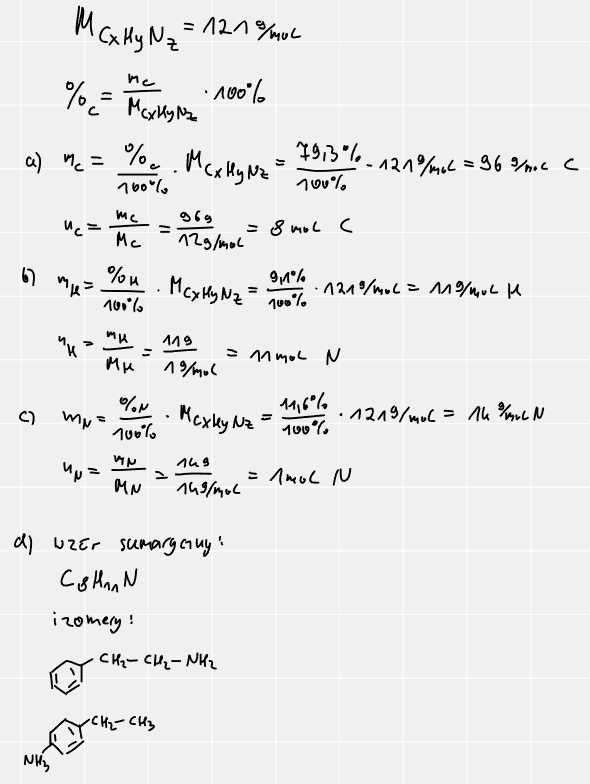 M_CxHyNz = 121 g/mol
%_C = m_C / M_CxHyNz · 100%
a) m_C = %_C / 100% · M_CxHyNz = 79,3% / 100% · 121 g/mol = 96 g/mol C
n_C = m_C / M_C = 96g / 12g/mol = 8 mol C
b) m_H = %H / 100% · M_CxHyNz = 9,1% / 100% · 121 g/mol = 11 g/mol H
n_H = m_H / M_H = 11g / 1g/mol = 11 mol N
c) m_N = %N / 100% · M_CxHyNz = 11,6% / 100% · 121 g/mol = 14 g/mol N
n_N = m_N / M_N = 14g / 14g/mol = 1 mol N
d) wzór sumaryczny:
C8H11N
izomery:
CH2-CH2-NH2
CH2-CH3
NH3